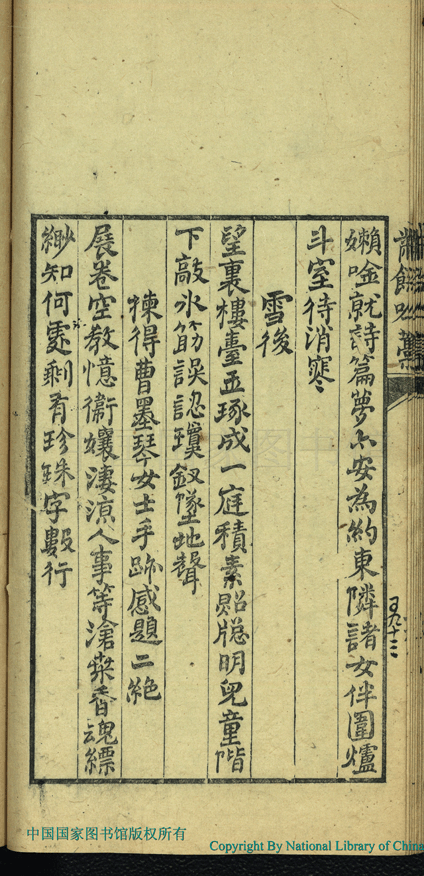 嬾唫就詩篇夢尒安為約東隣諸女伴圍爐
斗室待消寒
雪後
望裏樓臺玉琢成一庭積素照牎明兒童階
下敲冰筯誤認瓊釵墜地聲
揀得曹墨琴女士手跡感題二絶
展卷空教憶衛孃淒涼人事等滄桒香魂縹
緲知何處剩有珍珠字數行
中国国家图书馆版权所有
Copyright By National Library of China